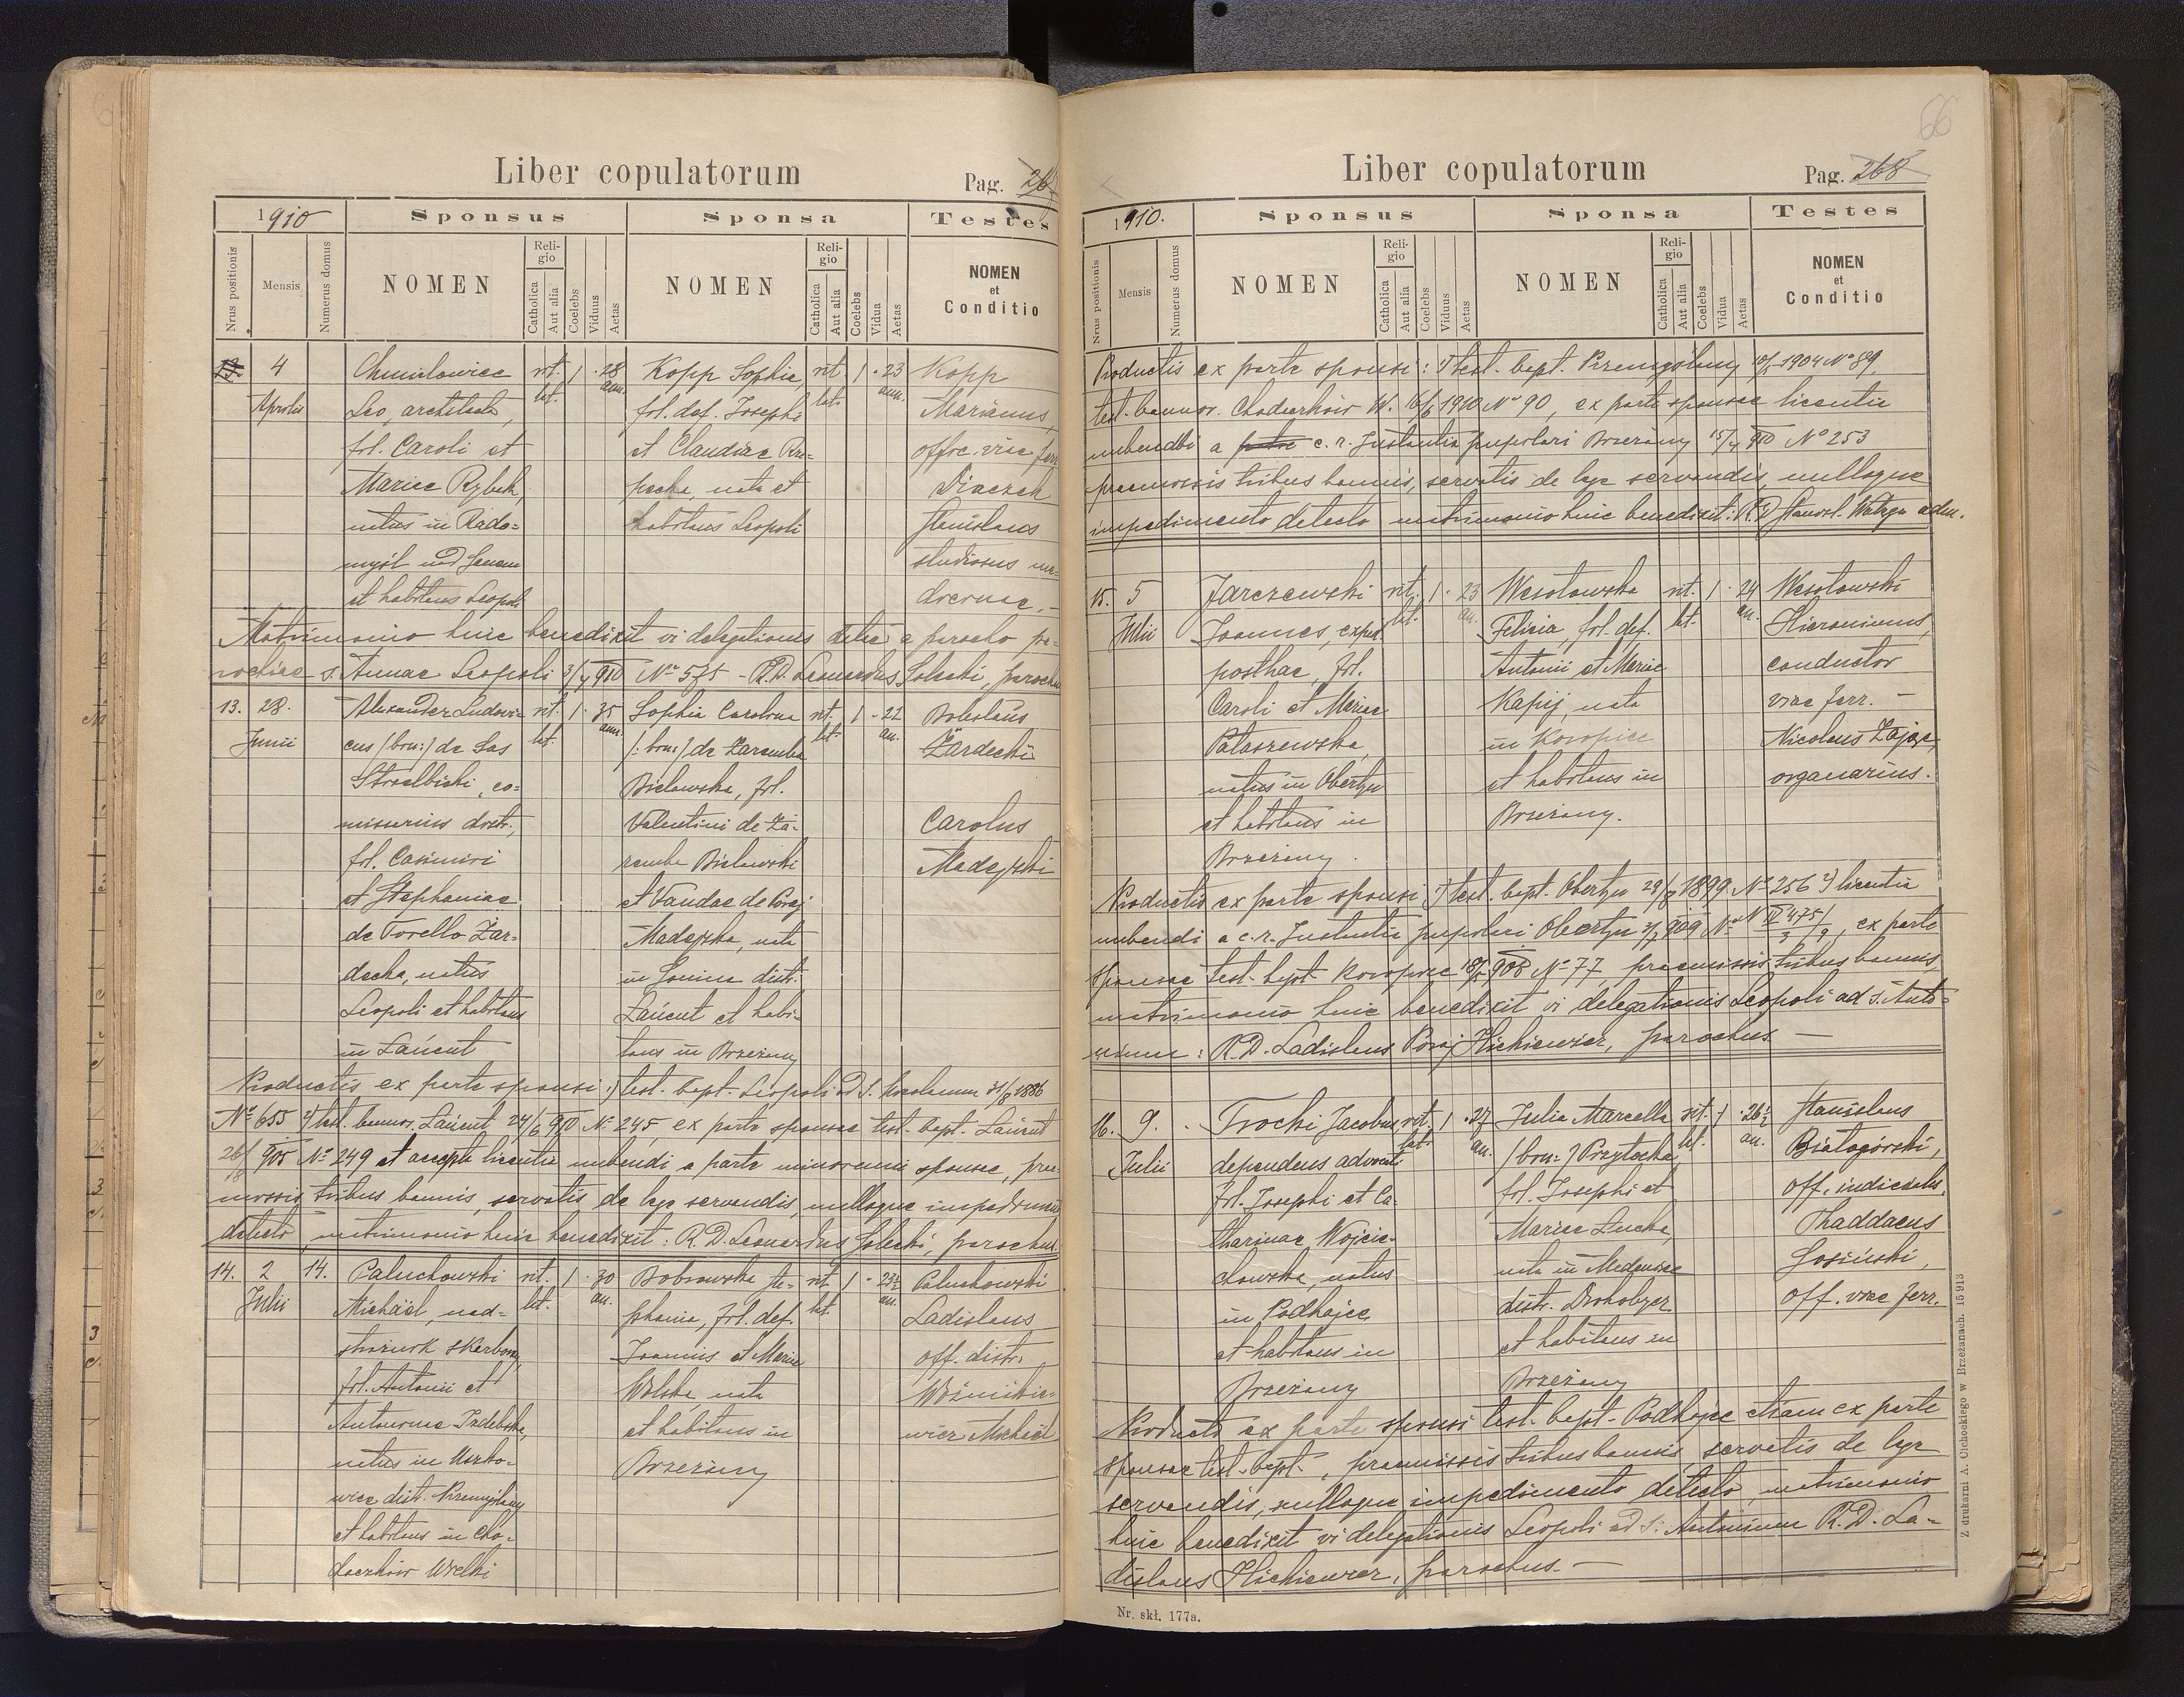 Liber copulatorum
Pag. 267
1910
Sponsus
Sponsa
Testes
Nrus positionis
Mensis
Numerus domus
NOMEN
Religio
Catholica
Aut alia
Coelebs
Viduus
Aetas
NOMEN
Religio
Catholica
Aut alia
Coelebs
Vidua
Aetas
NOMEN
et
Conditio
4 rit. 1 28 Kopp Sophie rit. 1 23 Kopp
Aprilis Leo, architecta, lat. ann. fil. def. Josephi lat. ann. Marianus,
fil. Caroli et et Claudiae Rze-
Mariae Rybak, pecka, nata et
natus in Rado- habitans Leopoli Stanislaus
myśl studiosus me-
et habitans Leopoli
Matrimonio huic benedixit vi delegationis a parocho pa-
rochiae s. Annae Leopoli 3/4 910 No 575 - R.D. Leonardus Solecki, parochus
13. 28. Alexander Ludovi- rit. 1 35 Sophia Carolina rit. 1 22 Boleslaus
Junii cus /bin:/ de Sas lat. ann. /:bin:/ de Zaremba lat. an. Żardecki
Strzelbicki, co- Bielawska, fil.
missarius distr., Valentini de Za- Carolus
fil. Casimiri remba Bielawski Madejski
et Stephaniae et Vandae de Poraj
de Torello Żar- Madejska, nata
decka, natus in Sonina distr.
Leopoli et habitans Łańcut et habi-
in Łańcut tans in Brzeżany
Productis ex parte sponsi 1) test. bapt. Leopoli ad S. Nicolaum 31/8 1886
No 655 2) test. bannor. Łańcut 24/6 910 No 245, ex parte sponsae test. bapt. Łańcut
26/8 905 No 249 et accepta licentia nubendi a parte minorennis sponsae, prae-
missis tribus bannis, servatis de lege servandis, nulloque impedimento
detecto, matrimonio huic benedixit: R.D. Leonardus Solecki, parochus.
14. 2 14. Paluchowski rit. 1 30 Bobrowska Ste- rit. 1 23½ Paluchowski
Julii Michaël, nad- lat. an. phania, fil. def. lat. an. Ladislaus
strażnik skarbowy, Joannis et Mariae off. distr.
fil. Antonii et Wolska, nata
Antoninae Izdebska, et habitans in wicz Michaël
natus in Brzeżany
distr. Przemyślany
et habitans in Cho-
daczków Wielki
Liber copulatorum
Pag. 268
66
1910.
Sponsus
Sponsa
Testes
Nrus positionis
Mensis
Numerus domus
NOMEN
Religio
Catholica
Aut alia
Coelebs
Viduus
Aetas
NOMEN
Religio
Catholica
Aut alia
Coelebs
Vidua
Aetas
NOMEN
et
Conditio
Productis ex parte sponsi: 1) test. bapt. Przemyślany 1904 No 89,
test. bannor. Chodaczków W. 16/6 1910 No 90, ex parte sponsae licentia
nubendi a c. r. Instantia pupilari Brzeżany 15/4 910 No 253
praemissis tribus bannis, servatis de lege servandis, nulloque
impedimento detecto matrimonio huic benedixit: R.D. Stanisl. adm.
15. 5 Jarczewski rit. 1 23 Wesołowska rit. 1 24 Wesołowski
Julii Joannes, lat. an. Felicia, fil. def. lat. an. Hieronimus,
fil. Antonii et Mariae conductor
Caroli et Mariae Kapij, nata viae ferr. -
Pataszewska, in Koropiec Nicolaus Zając,
natus in Obertyn et habitans in organarius.
et habitans in Brzeżany.
Brzeżany.
Productis ex parte sponsi 1) test. bapt. Obertyn 29/8 1899 No 256 2) licentia
nubendi a c. r. Instantia pupilari Obertyn 909 No IV 475/9, ex parte
sponsae test. bapt. Koropiec 908 No 77 praemissis tribus bannis,
matrimonio huic benedixit vi delegationis Leopoli ad S. Anto-
nium: R.D. Ladislaus Poraj Hickiewicz, parochus -
16. 9. Trocki Jacobus rit. 1 27 Julia Marcella rit. 1 26½ Stanislaus
Julii dependens advocati lat. an. /bin:/ Przytocka, lat. an. Białogórski,
fil. Josephi et Ca- fil. Josephi et off. iudicialis,
tharinae Wojcie- Mariae Łucka, Thaddaeus
chowska, natus nata in Medenice Sosiński,
in Podhajce distr. Drohobycz off. viae ferr.
et habitans in et habitans in
Brzeżany Brzeżany
Productis ex parte sponsi test. bapt. Podhajce etiam ex parte
sponsae test. bapt., praemissis tribus bannis, servatis de lege
servandis, nulloque impedimento detecto, matrimonio
huic benedixit vi delegationis Leopoli ad S. Antonium R.D. La-
dislaus Hickiewicz, parochus. -
Nr. skł. 177a.
Z drukarni A. Cichockiego w Brzeżanach. 15913